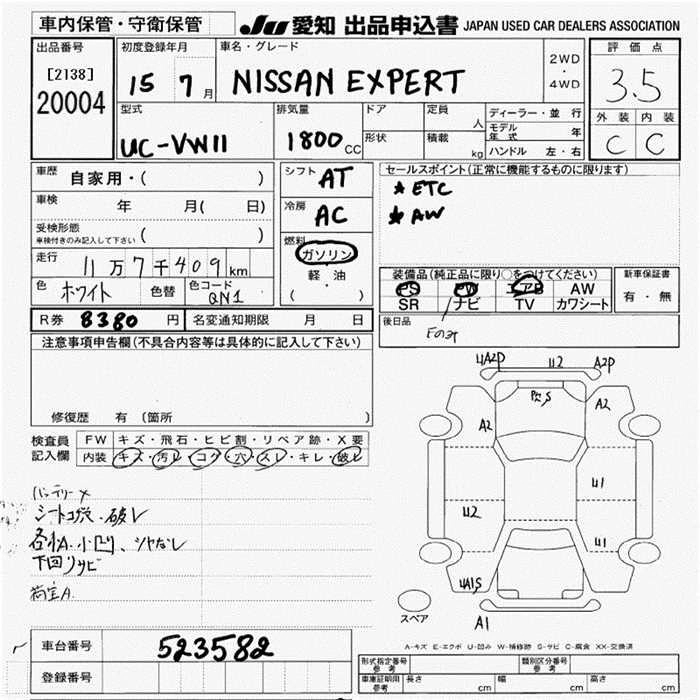 車内保管・守衛保管
JU 愛知 出品申込書 JAPAN USED CAR DEALERS ASSOCIATION
出品番号
[2138]
20004
初度登録年月
15 7月
車名・グレード
NISSAN EXPERT
2WD
・
4WD
評価点
3.5
外装 内装
C C
型式
UC-VW11
排気量
1800cc
ドア
形状
定員
人
積載
kg
ディーラー・並行
モデル年式 年
ハンドル 左・右
車歴
自家用・( )
車検
年 月( 日)
受検形態
車検付きのみ記入して下さい ( )
走行
11万7千409km
色
ホワイト
色替
色コード
QN1
シフト
AT
冷房
AC
燃料
ガソリン
軽・油
( )
セールスポイント(正常に機能するものに限ります)
★ETC
★AW
装備品(純正品に限り○をつけてください)
PS PW エアB AW
SR ナビ TV カワシート
新車保証書
有・無
R券 8380円
名変通知期限 月 日
後日品
Eのみ
注意事項申告欄(不具合内容等は具体的に記入して下さい)
修復歴 有 (箇所
検査員
記入欄
FW キズ・飛石・ヒビ割・リペア跡・X要
内装 キズ・汚レ・コゲ・穴・スレ・キレ・破レ
バッテリーX
シートコゲ穴・破レ
各小A、小凹、ツヤなし
下回りサビ
荷室A
UA2P U2 A2P
A2 A2
U1
U2
U1
UA1S
A1
スペア
A-キズ E-エクボ U-凹み W-補修跡 S-サビ C-腐食 XX-交換済
車台番号
523582
登録番号
形式指定番号
参考
類別区分番号
参考
車庫証明用
参考
長さ cm 幅 cm 高さ cm